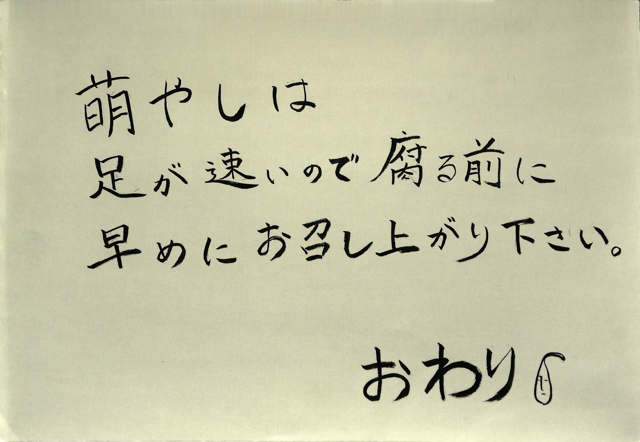 萌やしは
足が速いので腐る前に
早めにお召し上がり下さい。
おわり